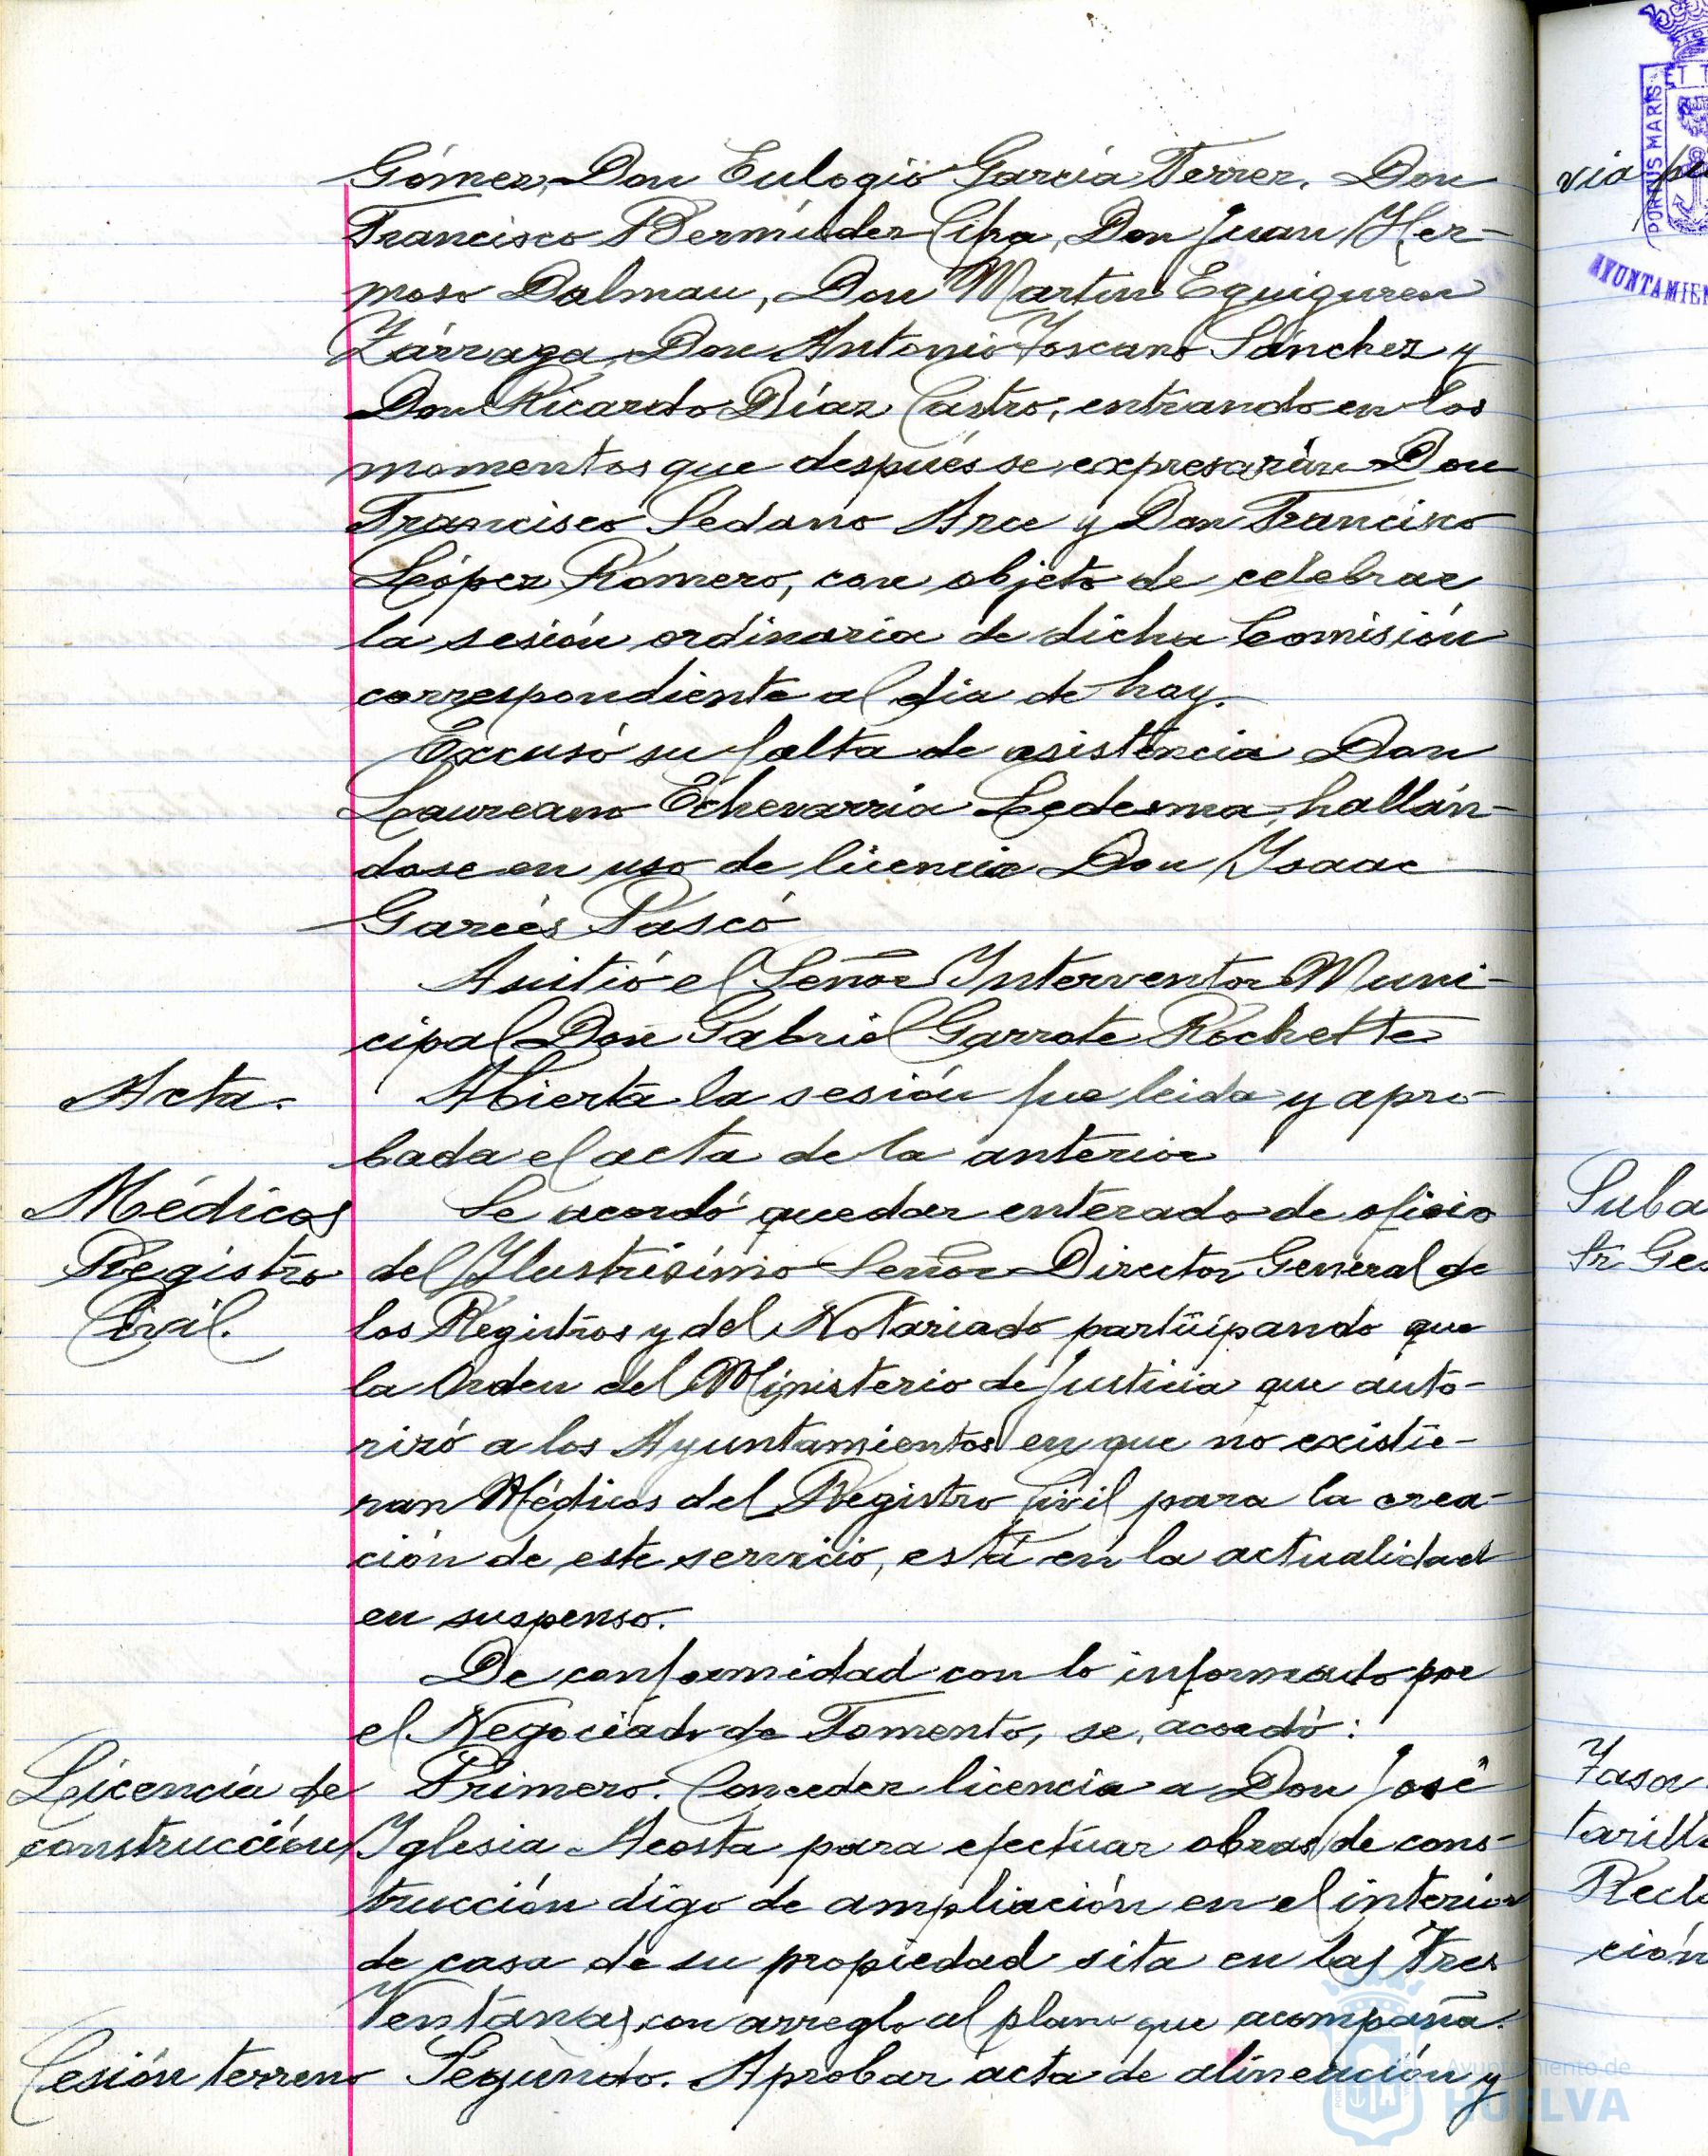 Gómez, Don Eulogio García Ferrer, Don
Francisco Bermúdez Ciba, Don Juan Her-
moso Dalmau, Don Martín Eguiguren
Zárraga, Don Antonio Toscano Sánchez y
Don Ricardo Díaz Castro, entrando en los
momentos que después se expresarán Don
Francisco Sedano Arce y Don Francisco
López Romero, con objeto de celebrar
la sesión ordinaria de dicha Comisión
correspondiente al día de hoy.
Excusó su falta de asistencia Don
Laureano Echevarría Ledesma, hallán-
dose en uso de licencia Don Isaac
Garcés Pascó
Asitió el Señor Interventor Muni-
cipal Don Gabriel Garrote Rochette
Acta.
Abierta la sesión fue leída y apro-
bada el acta de la anterior
Médicos
Registro
Civil.
Se acordó quedar enterado de oficio
del Ilustrísimo Señor Director General de
los Registros y del Notariado participando que
la Orden del Ministerio de Justicia que auto-
rizó a los Ayuntamientos en que no existie-
ran Médicos del Registro Civil para la crea-
ción de este servicio, está en la actualidad
en suspenso.
De conformidad con lo informado por
el Negociado de Fomento, se acordó:
Licencia de
construcción
Primero. Conceder licencia a Don José
Iglesia Acosta para efectuar obras de cons-
trucción digo de ampliación en el interior
de casa de su propiedad sita en las Tres
Ventanas, con arreglo al plano que acompaña.
Cesión terreno
Segundo. Aprobar acta de alineación y
via
PORTUS MARIS ET T
AYUNTAMIEN
Suba
Sr Ges
Tasa
tarilla
Recla
ción
Ayuntamiento de
HUELVA